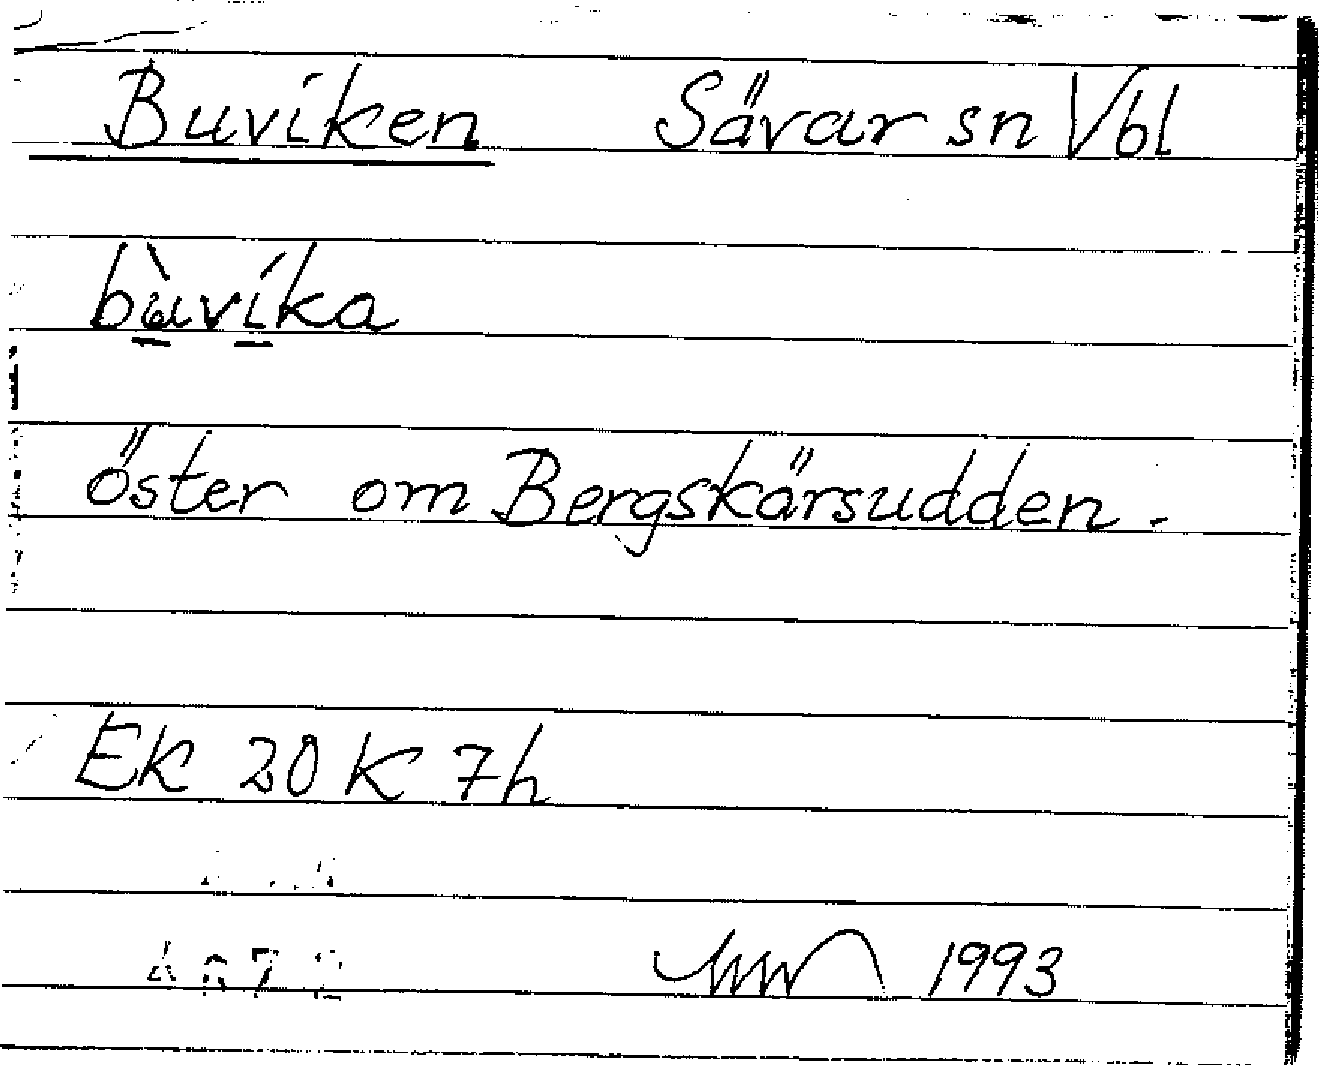 Buviken Sävar sn Vbl
bùvíka
öster om Bergskärsudden.
Ek 20 K 7h
1993